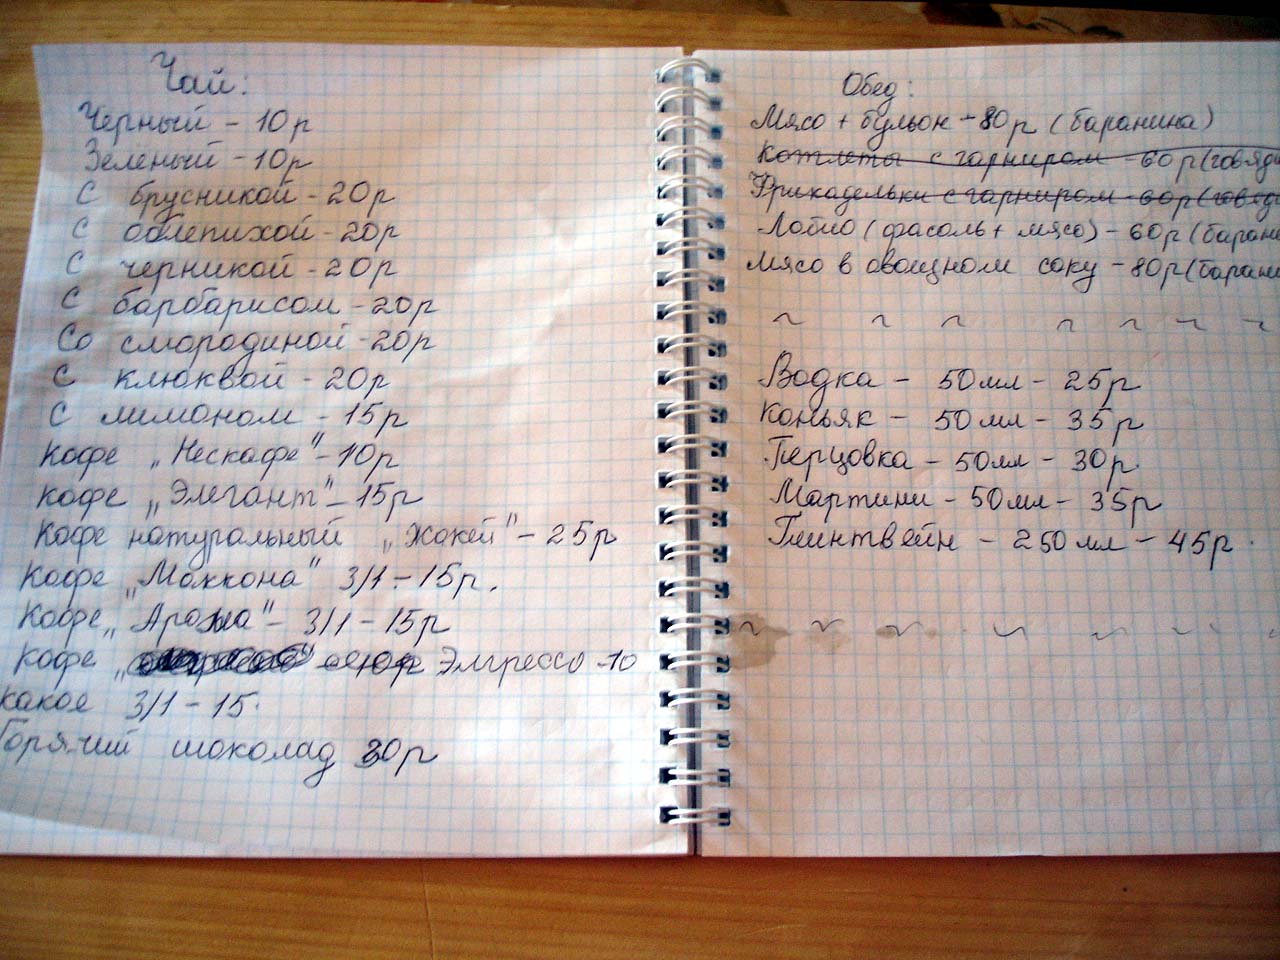 Чай:
Черный - 10р
Зеленый - 10р
С брусникой - 20р
С облепихой - 20р
С черникой - 20р
С барбарисом - 20р
Со смородиной - 20р
С клюквой - 20р
С лимоном - 15р
Кофе „Нескафе" - 10р
Кофе „Элегант" - 15р
Кофе натуральный „Жокей" - 25р
Кофе „Маккона" 3/1 - 15р.
Кофе „Арома" - 3/1 - 15р
Кофе Элгрессо - 10
какое 3/1 - 15.
Горячий шоколад 30р
Обед:
Мясо + бульон - 80р (баранина)
Котлеты с гарниром - 60р (говяди
Фрикадельки с гарниром - 60р (говяд
Лобио (фасоль + мясо) - 60р (барани
Мясо в овощном соку - 80р (барани
~ ~ ~ ~ ~ ~ ~
Водка - 50 мл - 25р
Коньяк - 50 мл - 35р
Перцовка - 50мл - 30р.
Мартини - 50мл - 35р
Глинтвейн - 250 мл - 45р.
~ ~ ~ ~ ~ ~ ~